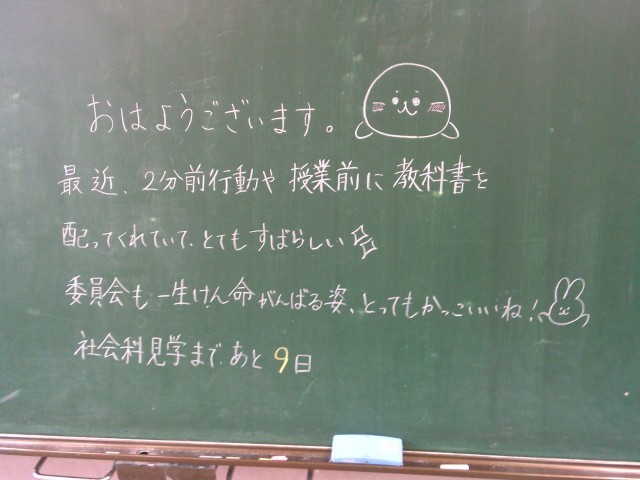 おはようございます。
最近、2分前行動や授業前に教科書を
配ってくれていて、とてもすばらしい
委員会も一生けん命がんばる姿、とってもかっこいいね!
社会科見学まで、あと9日